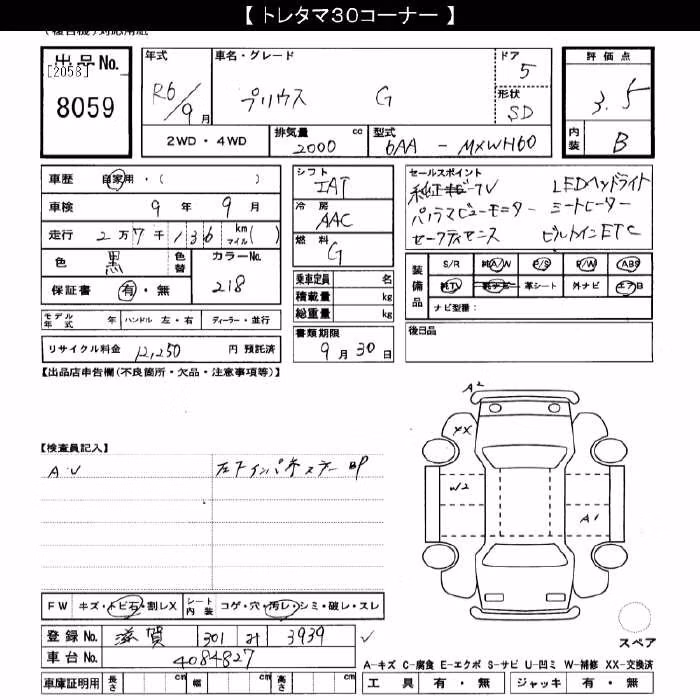 【 トレタマ30コーナー 】
(複合機)対応用紙
出品No.
[2058]
8059
年式
R6/9月
車名・グレード
プリウス G
ドア
5
形状
SD
評価点
3.5
内装
B
2WD・4WD
排気量 cc
2000
型式
6AA - MXWH60
車歴 自家用・( )
車検 9年 9月
走行 2万7千136 km マイル( )
色 黒 色替
カラーNo.
218
保証書 有・無
シフト
IAT
冷房
AAC
燃料
G
乗車定員 名
積載量 kg
総重量 kg
セールスポイント
純正ナビTV LEDヘッドライト
パノラマビューモニター シートヒーター
セーフティセンス ビルトインETC
装備品
S/R 純A/W P/S P/W ABS
純TV 純ナビ 革シート 外ナビ エアB
ナビ型番:
モデル年式 年 ハンドル 左・右 ディーラー・並行
リサイクル料金 12,250 円 預託済
書類期限
9月30日
後日品
【出品店申告欄(不良箇所・欠品・注意事項等)】
【検査員記入】
A.U
左Fインパネステー BP
A2
XX
W2
A1
FW キズ・トビ石・割レX
シート内装 コゲ・穴・汚レ・シミ・破レ・スレ
登録No. 滋賀 301 み 3939
車台No. 4084827
車庫証明用 長さ cm 幅 cm 高さ cm
スペア
A-キズ C-腐食 E-エクボ S-サビ U-凹ミ W-補修 XX-交換済
工具 有・無 ジャッキ 有・無